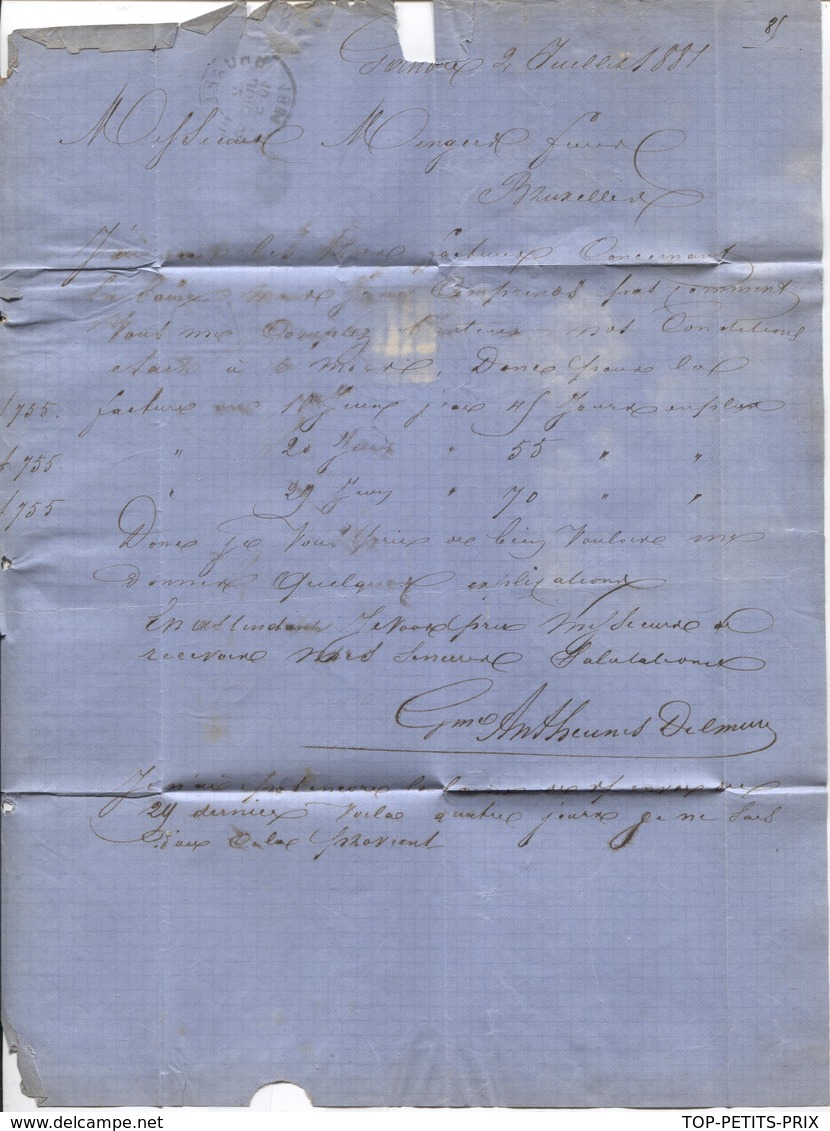 85
2 Juillet 1881
Messieurs Mengers freres
Bruxelles
J'ai les factures Concernant
la laine Comprends pas Comment
Vous me Comptez nos Conditions
etais à 6 mois, Donc pour la
1755. facture du Juin j'ai 45 Jours en plus
1755. " 20 Juin " 55 " "
1755 " 29 Juin " 70 " "
Donc je vous prie de bien vouloire me
Donner quelques explications
En attendant Je vous prie messieurs de
recevoire mers sincere Salutations
Gme Antheunis Delmeire
Je n'ai pas encore
29 dernier Voila quatre jours je ne sais
d'ou cela provient
TOP-PETITS-PRIX